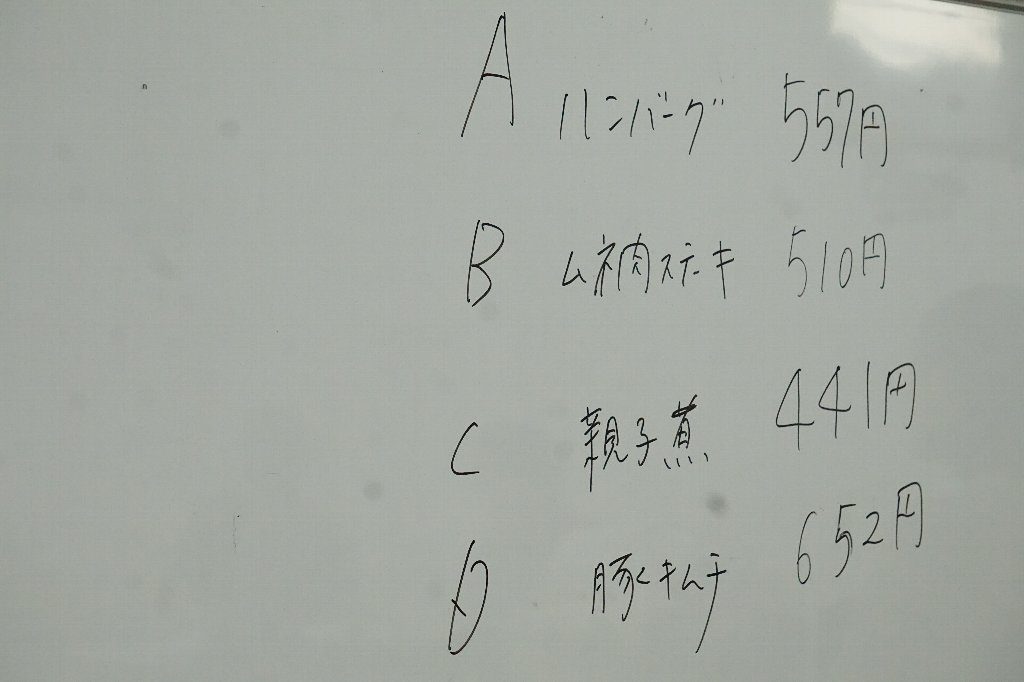 A ハンバーグ 557円
B ムネ肉ステーキ 510円
C 親子煮 441円
D 豚キムチ 652円